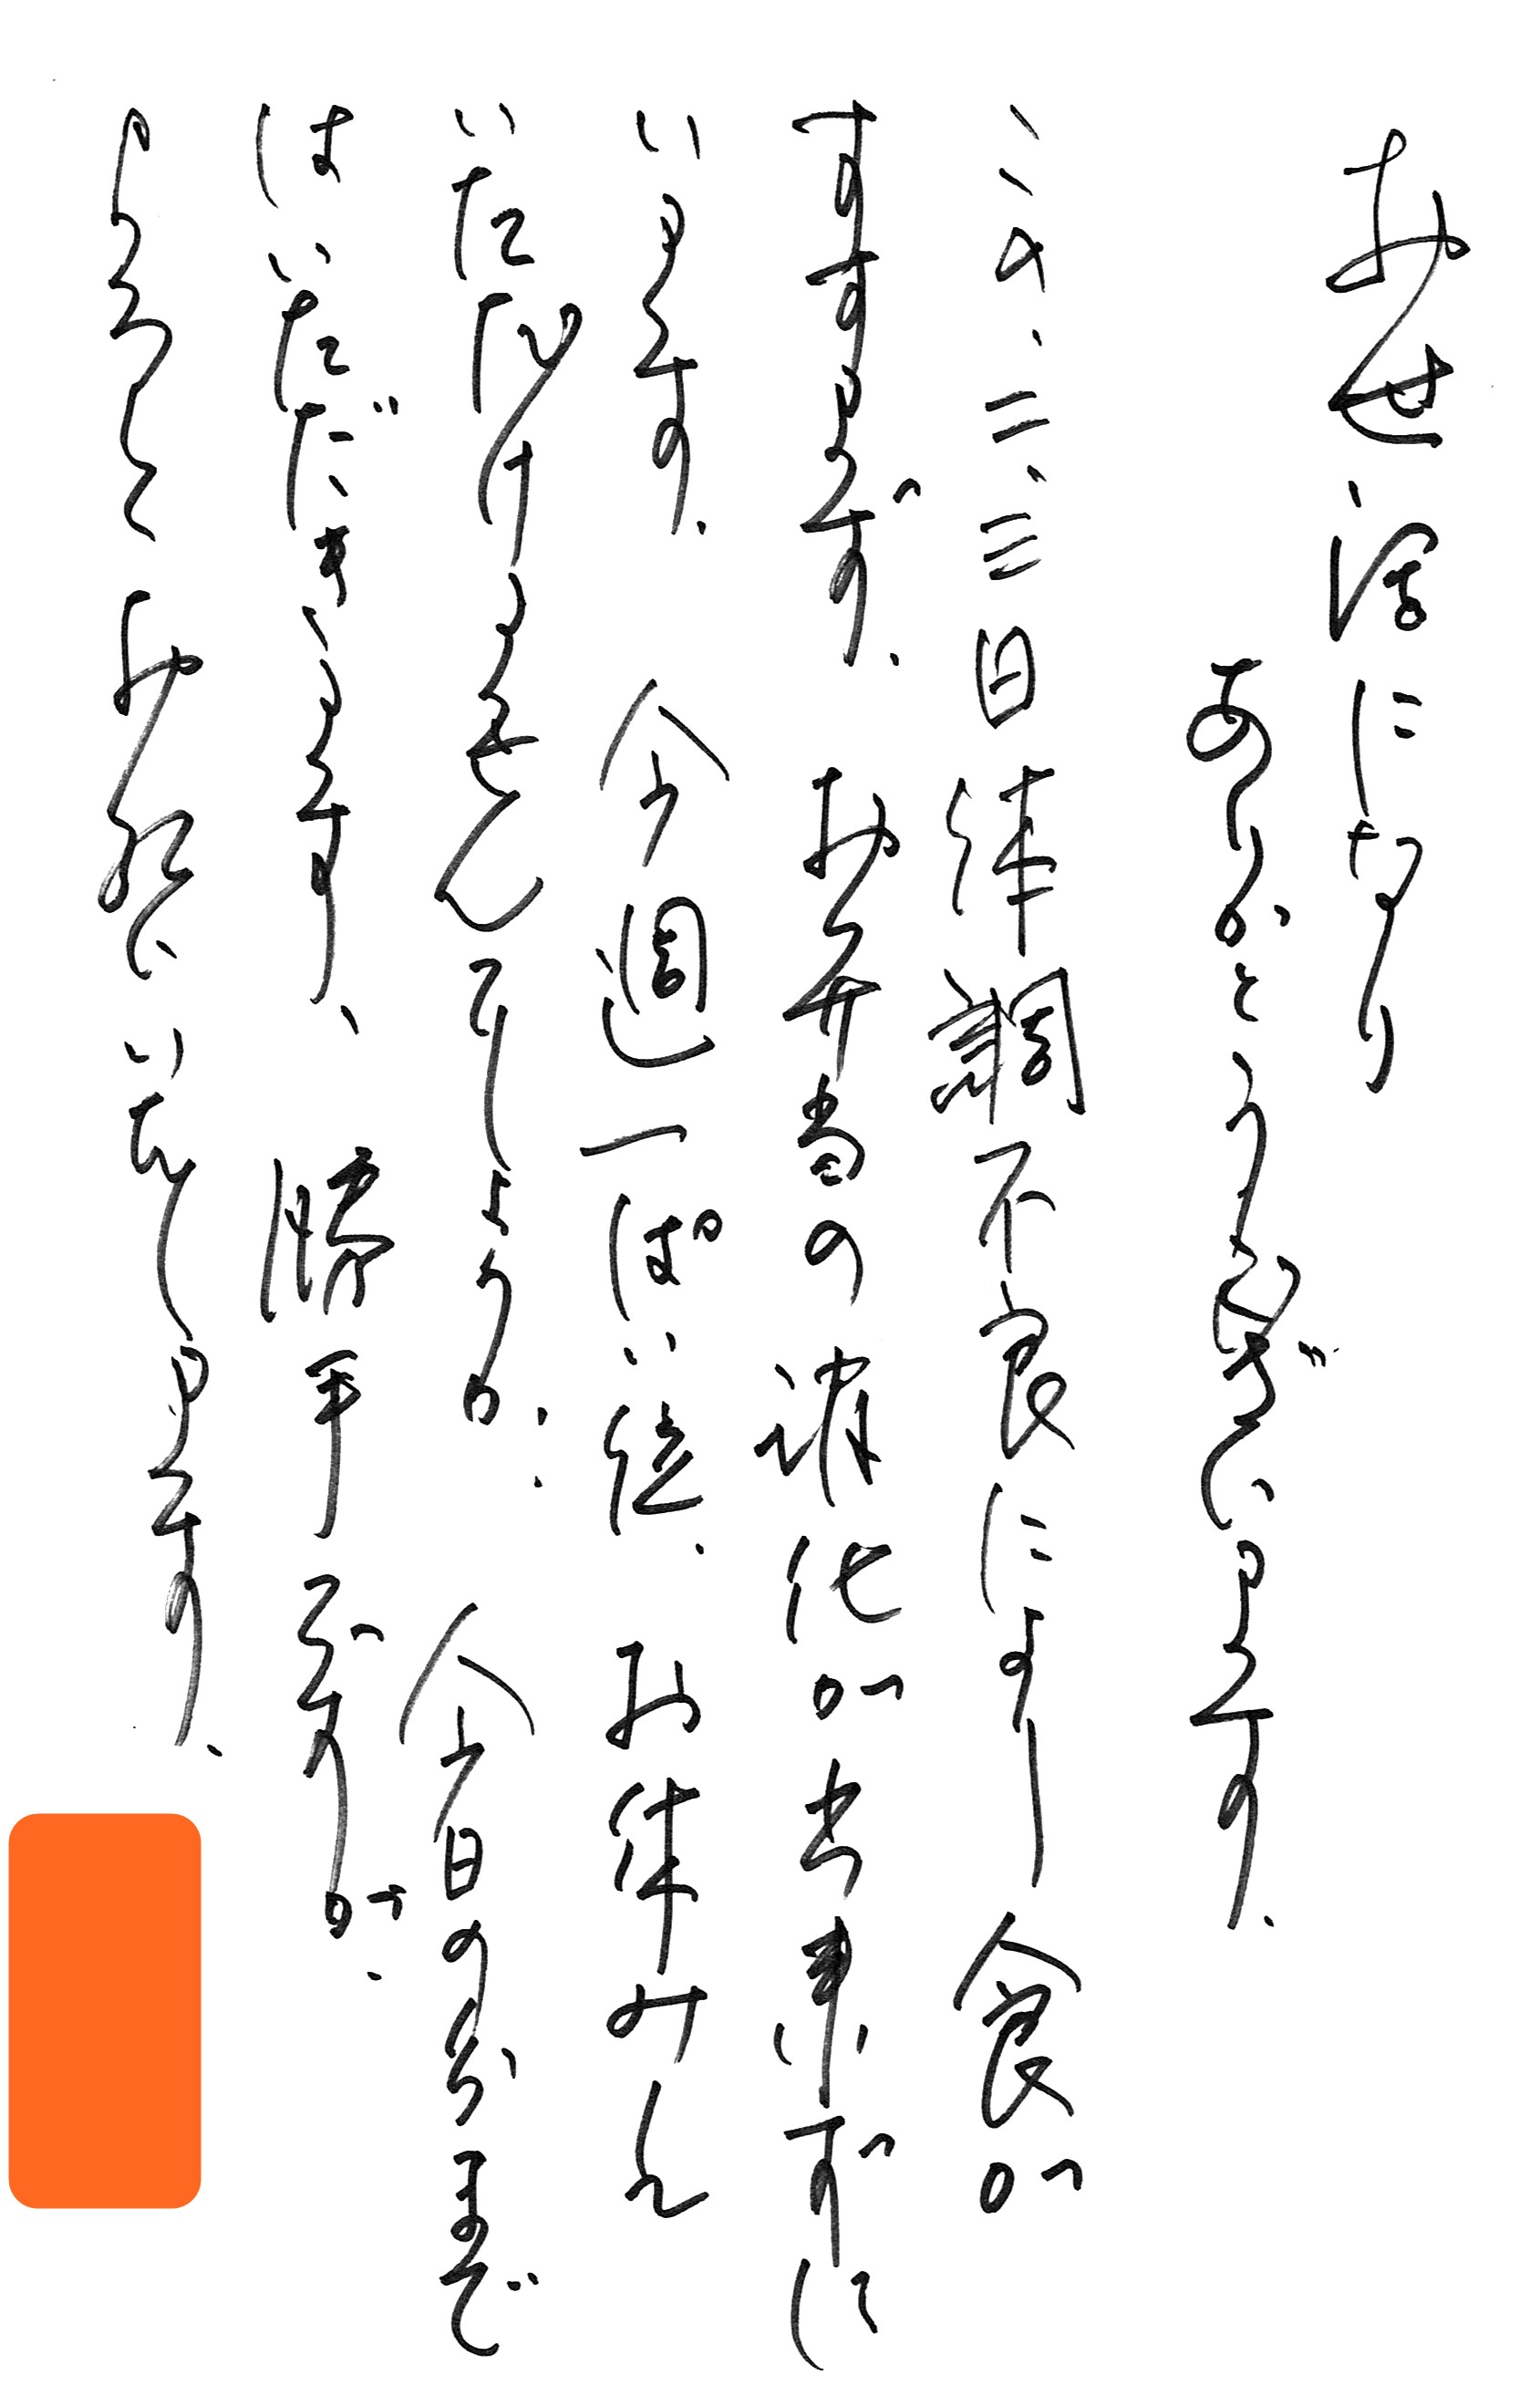 お世話になり
ありがとうございます.
この、二、三日体調不良により食が
すすまず. お弁当の消化が出来ずに
います. 今週一ぱい位. お休みん
いただけませんでしょうか. 今日の分まで
はいただきます、勝手ですが.
よろしくお願いいたします.